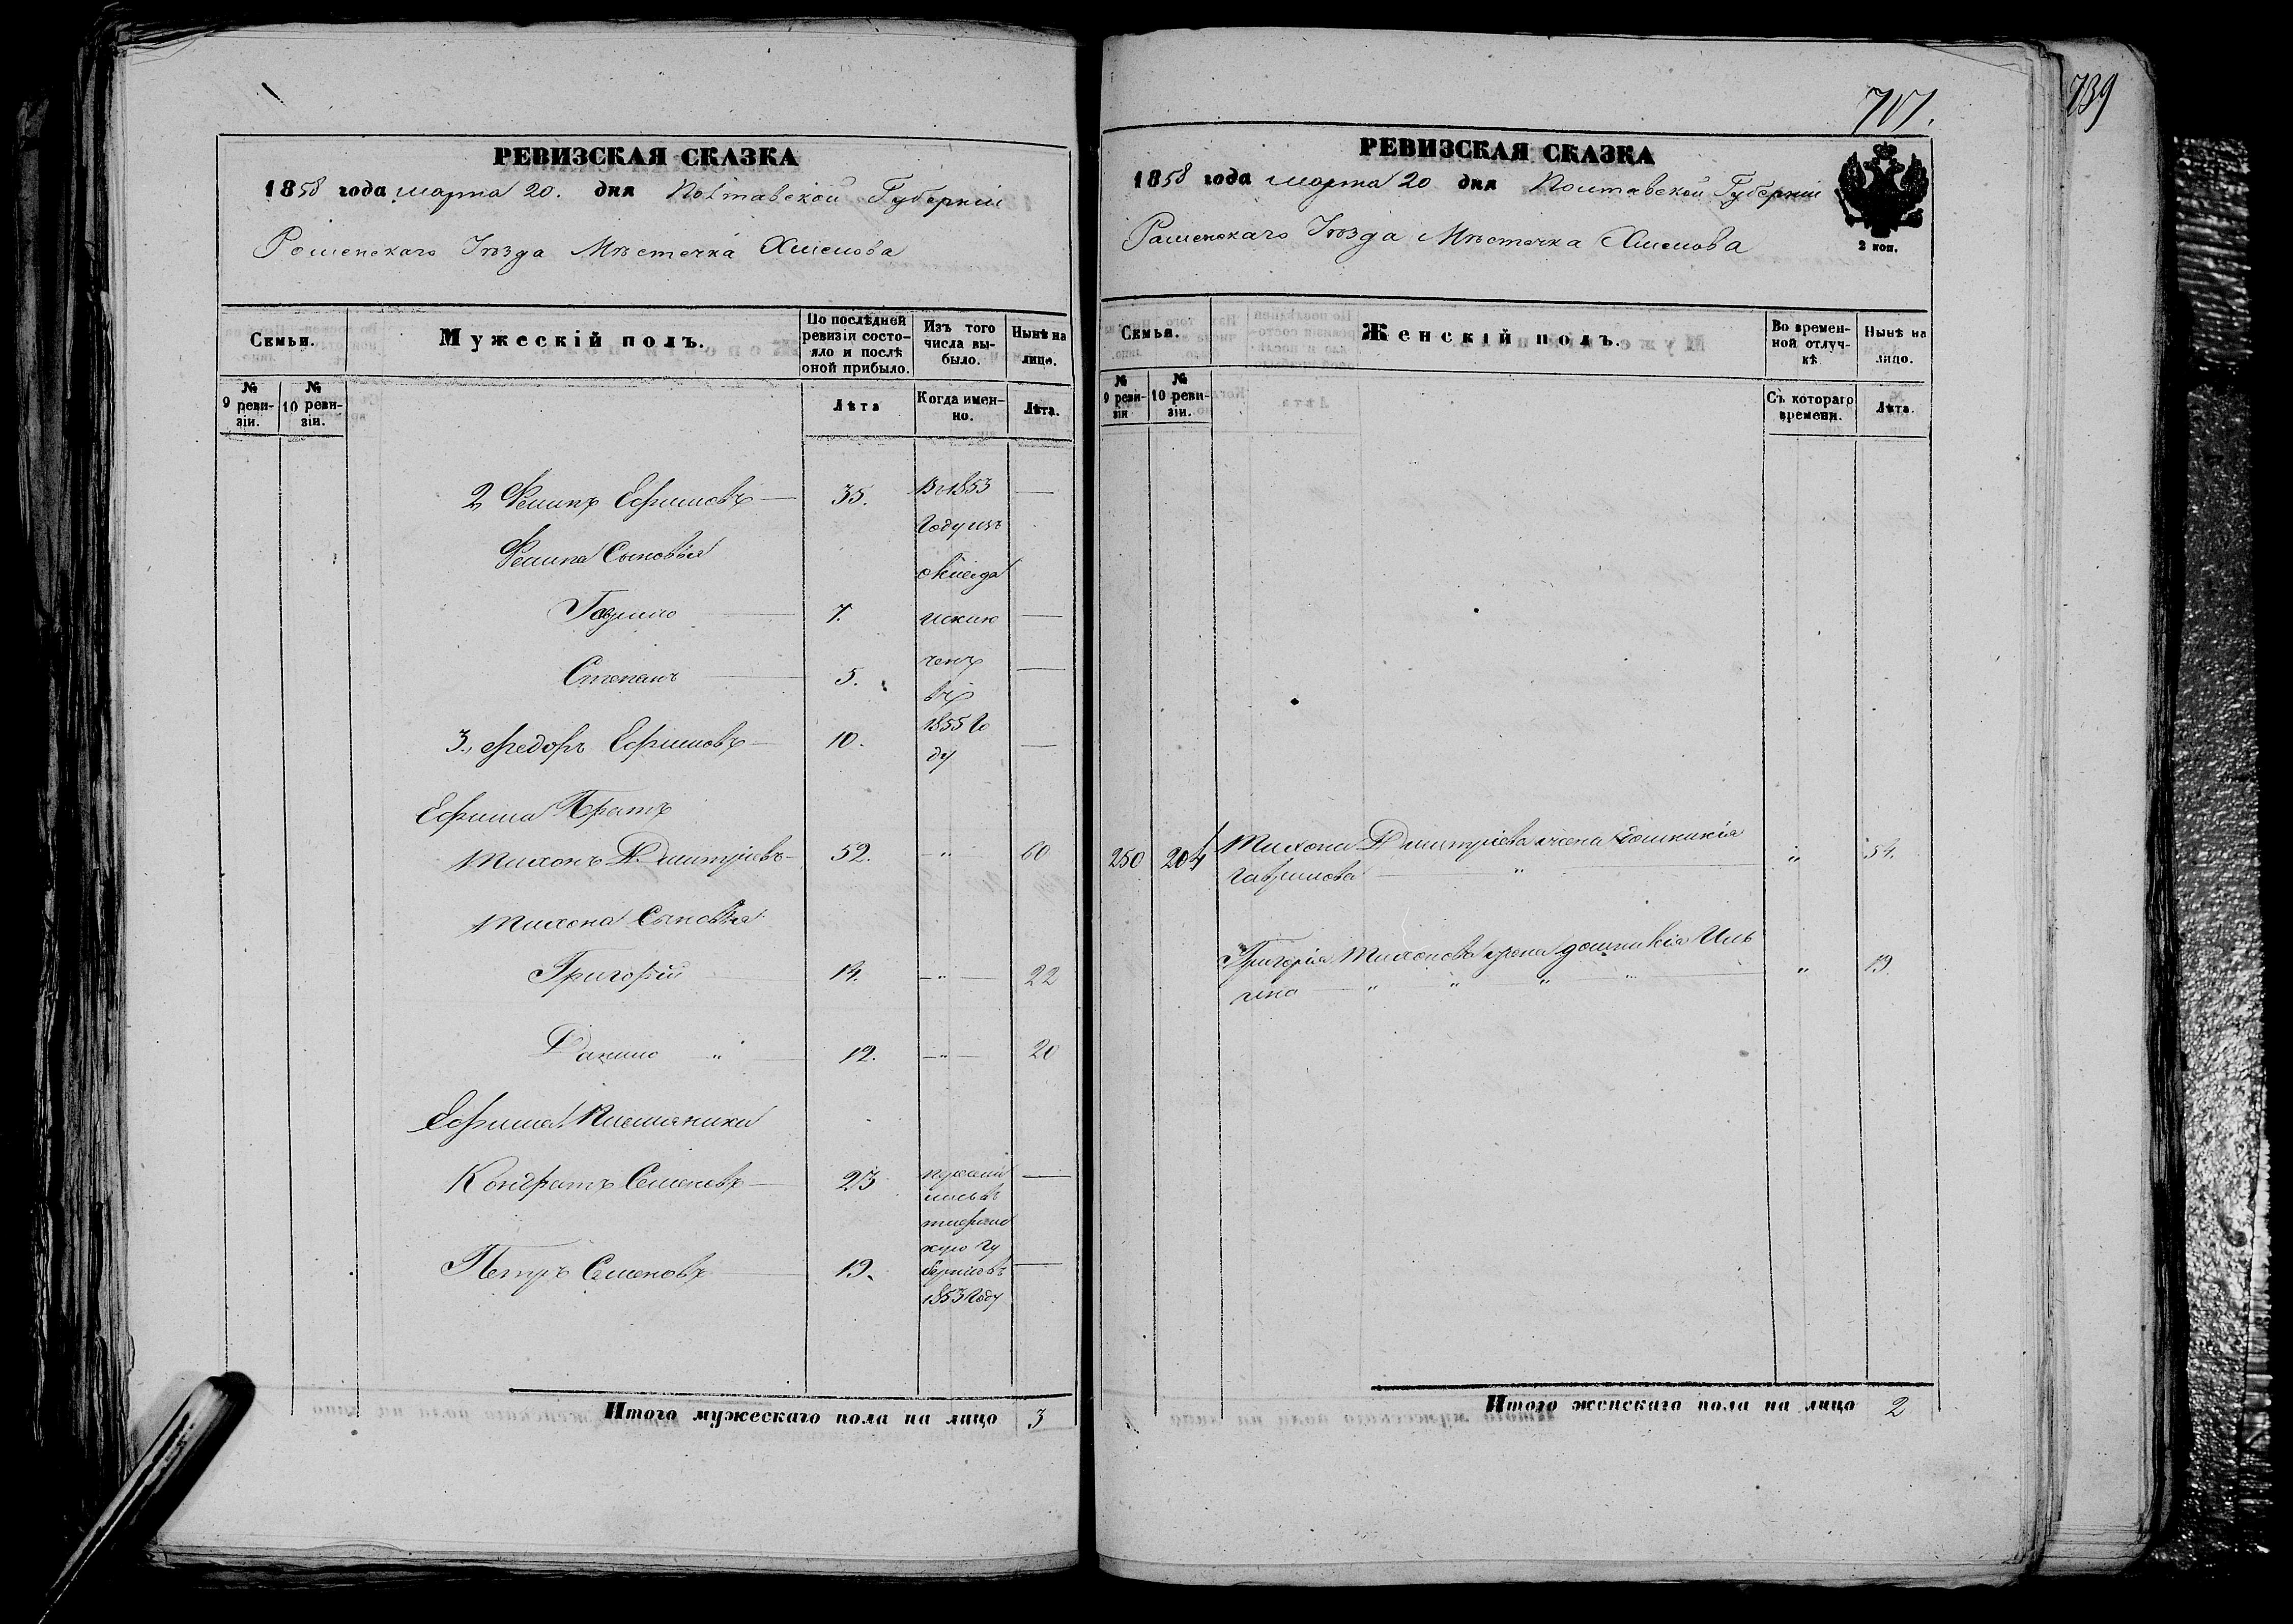 РЕВИЗСКАЯ СКАЗКА
1858 года марта 20. дня Полтавской Губерніи
Роменскаго Уѣзда Мѣстечка Хмелова
Семьи.
Мужескій полъ.
По послѣдней ревизіи состояло и послѣ оной прибыло.
Изъ того числа выбыло.
Нынѣ на лицо.
№ 9 ревизіи.
№ 10 ревизіи.
Лѣта
Когда именно.
Лѣта.
2 Филипъ Ефимовъ 35. В 1853
Году изъ
Филипа Сыновья
оклада
Гаврило 7. исклю
ченъ
Степанъ 5.
въ
1855 Го
3., Федоръ Ефимовъ 10.
ду
Ефима Братъ
Тихонъ Дмитріевъ 52. " 60
Тихона Сыновья
Григорій 14. " 22
Данило " 12. " 20
Ефима Племяники
Кондратъ Семеновъ 23
Петръ Семеновъ 19.
кую Гу
берніювъ
1853 Году
Итого мужескаго пола на лицо 3
707.
739
РЕВИЗСКАЯ СКАЗКА
1858 года марта 20 дня Полтавской Губерніи
Роменскаго Уѣзда Мѣстечка Хмелова
2 коп.
Семьи.
Женскій полъ.
Во временной отлучкѣ
Нынѣ на лицо.
№ 9 ревизіи
№ 10 ревизіи.
Съ котораго времени.
Лѣта.
250 204 Тихона Дмитріева жена
Гаврилова " " 54.
Григорія Тихонова жена домникія Иль
ина " " " " " 19.
Итого женскаго пола на лицо 2